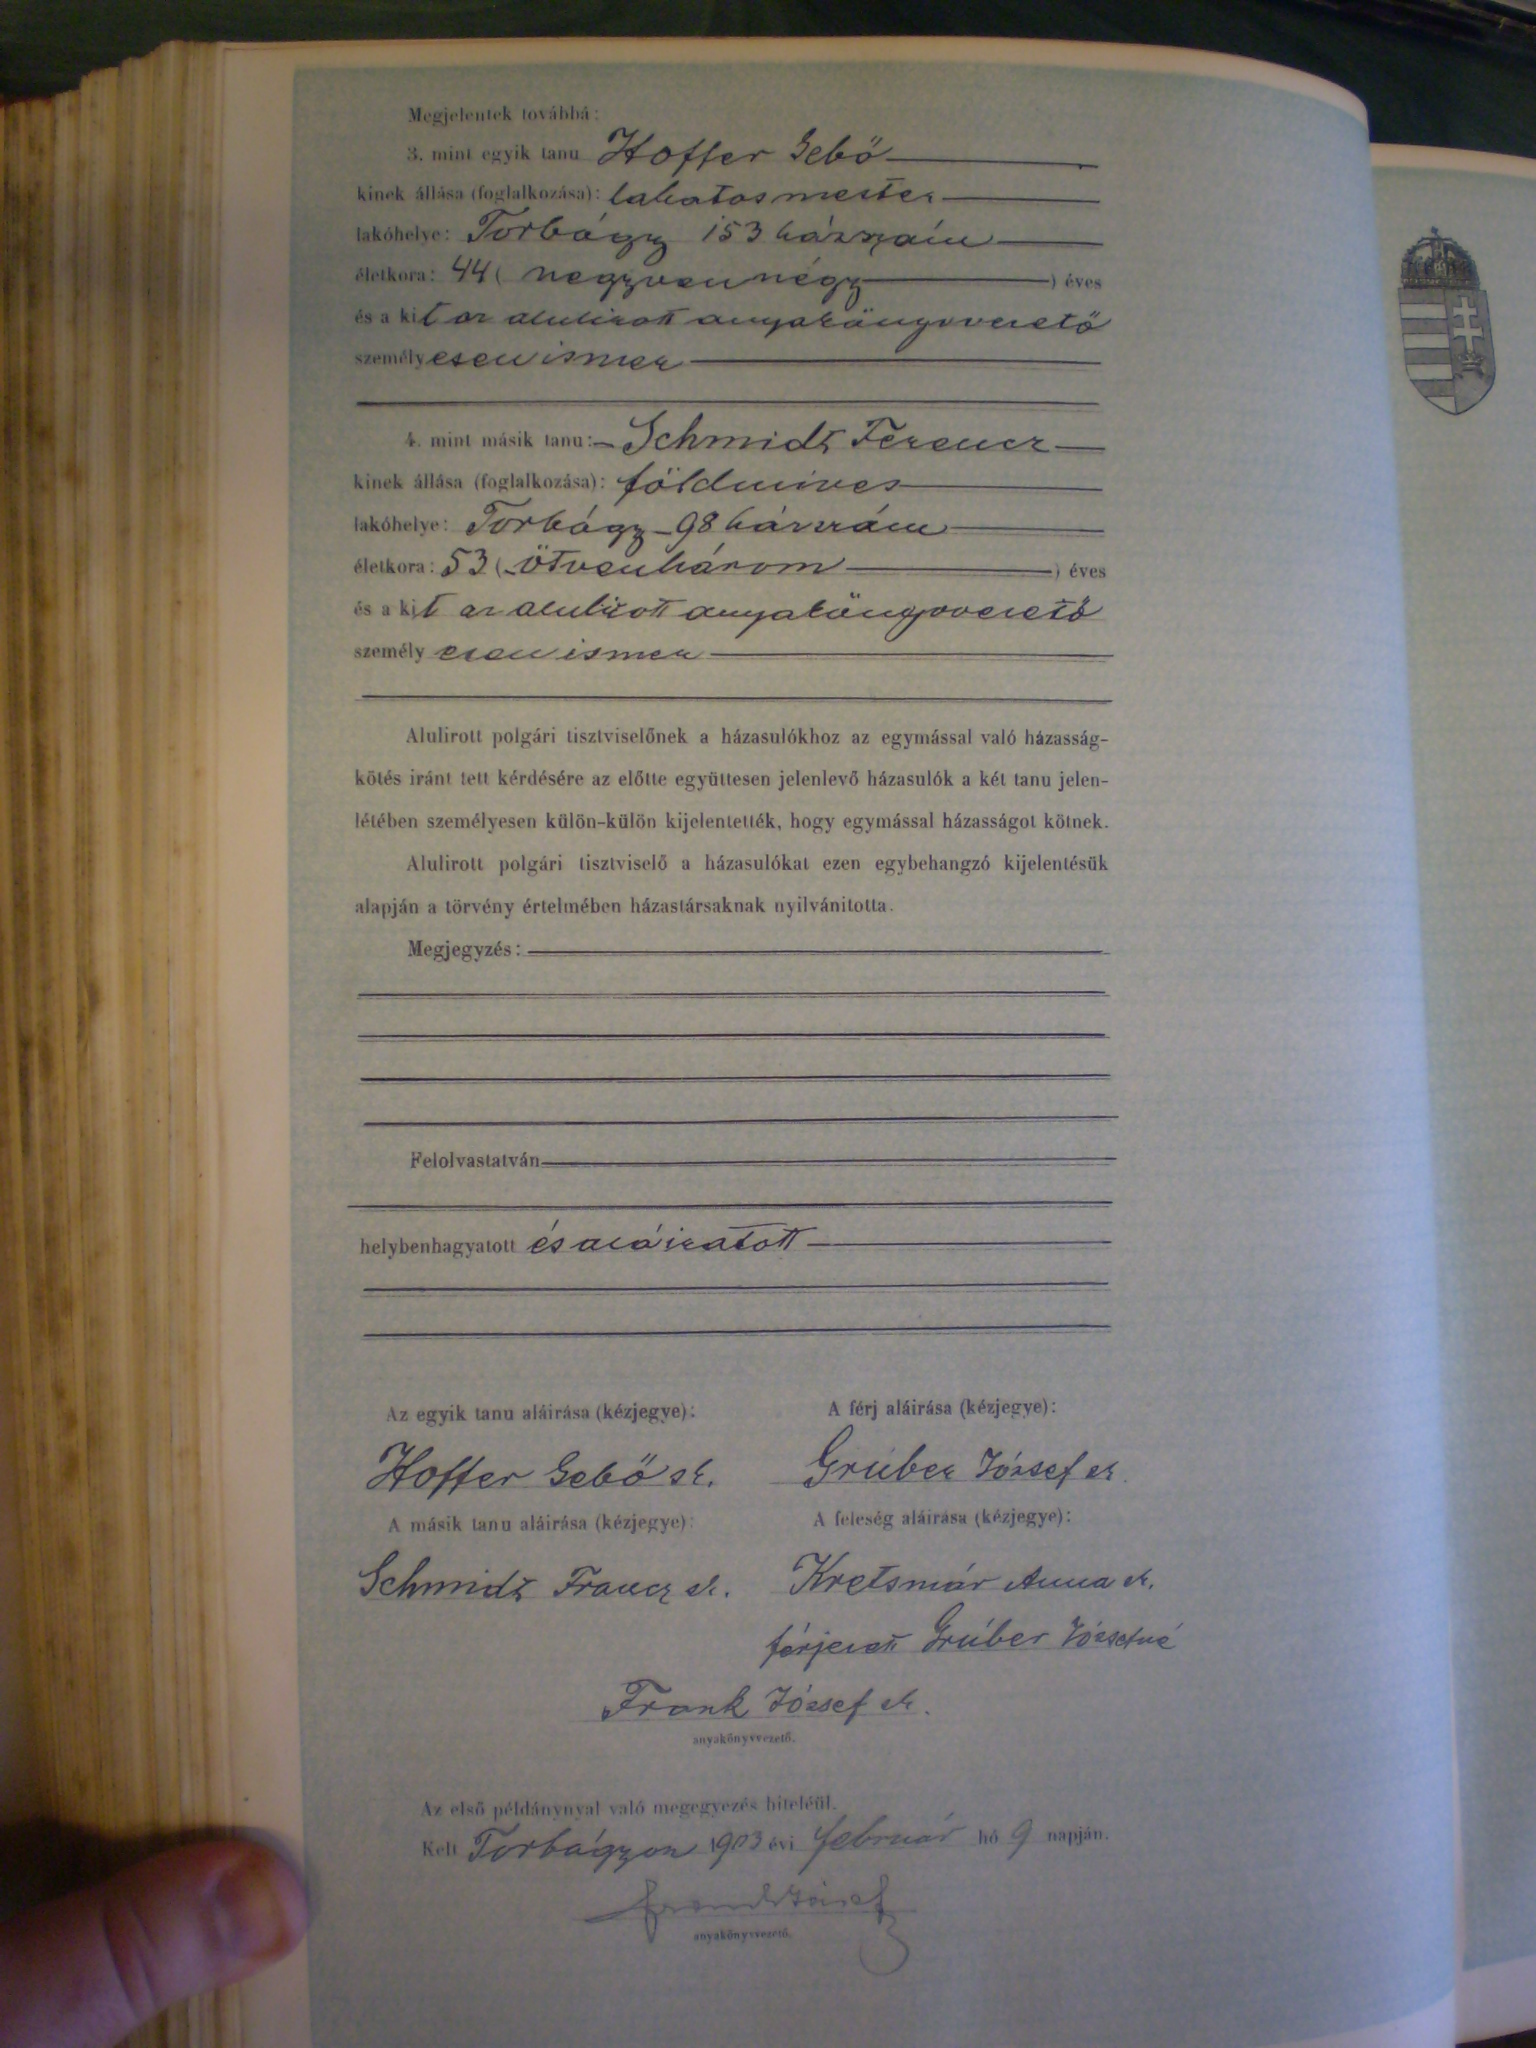 Megjelentek továbbá:
3. mint egyik tanu Hoffer Gebő
kinek állása (foglalkozása): lakatosmester
lakóhelye: Torbágy 153 házszám
életkora: 44 ( negyvennégy ) éves
és a kit az alulirott anyakönyvvezető
személyesen ismer
4. mint másik tanu: Schmidt Ferencz
kinek állása (foglalkozása): földmives
lakóhelye: Torbágy 98 házszám
életkora: 53 ( ötvenhárom ) éves
és a kit az alulirott anyakönyvvezető
személyesen ismer
Alulirott polgári tisztviselőnek a házasulókhoz az egymással való házasság-
kötés iránt tett kérdésére az előtte együttesen jelenlevő házasulók a két tanu jelen-
létében személyesen külön-külön kijelentették, hogy egymással házasságot kötnek.
Alulirott polgári tisztviselő a házasulókat ezen egybehangzó kijelentésük
alapján a törvény értelmében házastársaknak nyilvánitotta.
Megjegyzés:
Felolvastatván
helybenhagyatott és aláiratott
Az egyik tanu aláirása (kézjegye): A férj aláirása (kézjegye):
Hoffer Gebő sk. Grúber József sk.
A másik tanu aláirása (kézjegye): A feleség aláirása (kézjegye):
Schmidt Francz sk. Kretsmár Anna sk.
férjezett Grúber Józsefné
Frank József sk.
anyakönyvvezető.
Az első példánynyal való megegyezés hiteléül.
Kelt Torbágyon 1903 évi február hó 9 napján.
Frank József
anyakönyvvezető.